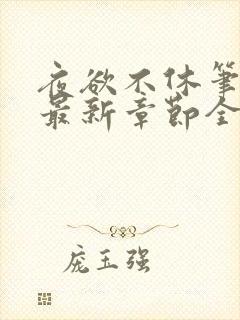 夜欲不休笔
最新章节全
庞玉强